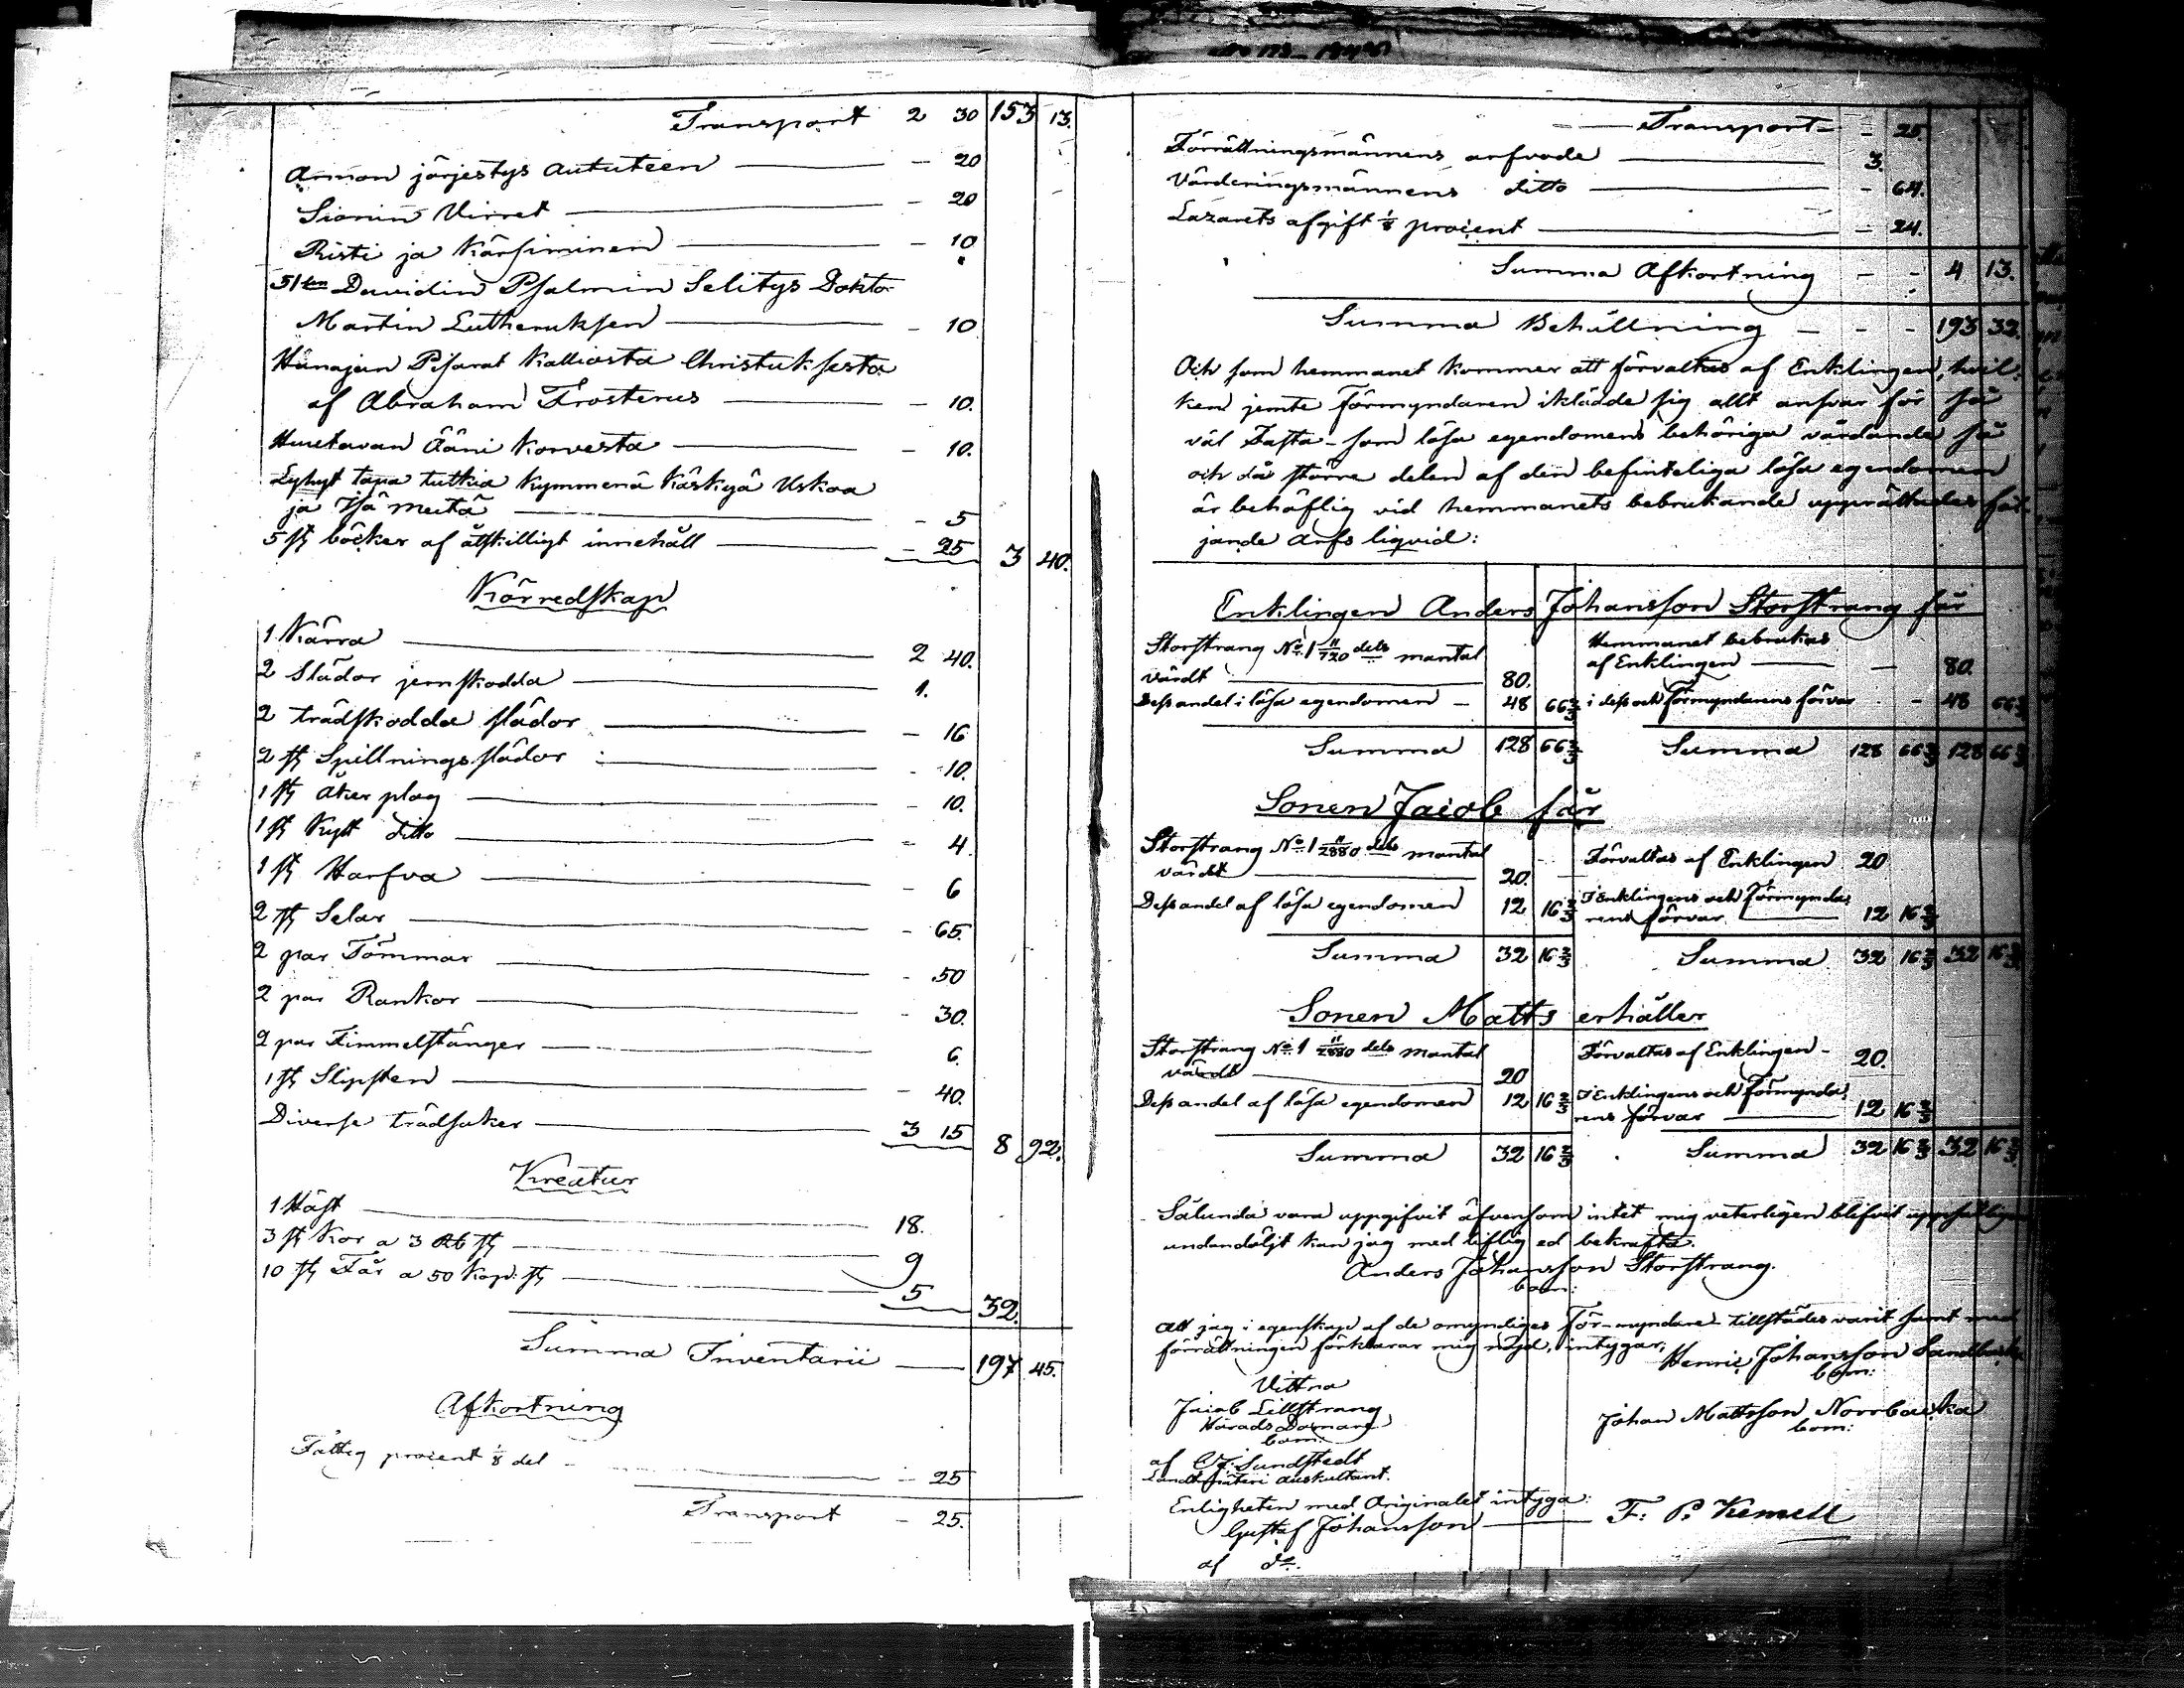 Transport 2 30 153 13.
Armon järjestys Aututeen — 20
Sionin Virret — 20
Risti ja Kärsiminen — 10
51ten Davidin Psalmin Selitys Doktor
Martin Lutheruksen — 10
Hunajan Pisarat Kalliosta Christuksesta
af Abraham Frosterus — 10.
Huutavan Ääni Korvesta — 10.
Lyhyt tapa tutkia Kymmenä Käskyä Uskoa
ja Isä meitä — 5
5 st böcker af åtskilligt innehåll — 25 3 40.
Körredskap
1 Kärra 2 40.
2 Slädor jernskodda 1.
2 trädskodda slädor — 16
2 st Spillningsslädor — 10.
1 st Åker plog — 10.
1 st Kytt ditto — 4
1 st Harfva — 6
2 st Selar — 65.
2 par Tömmar — 50
2 par Rankor — 30.
2 par Fimmelstänger 6.
1 st Slipsten — 40.
Diverse trädsaker 3 15 8 92.
Kreatur
1 Häst 18.
3 st Kor a 3 Rb st 9
10 st Får a 50 Kop: st 5 32.
Summa Inventarii 197 45.
Afkortning
Fattig procent 1/8 del — 25
Transport — 25.
Transport — 25.
Förrättningsmännens arfvode 3.
Värderingsmännens ditto — 64.
Lazarets afgift 1/8 procent — 24.
Summa Afkortning — - 4 13.
Summa Behållning — - - 193 32.
Och som hemmanet kommer att förvaltas af Enklingen, hvil-
ken jemte Förmyndaren iklädde sig allt ansvar för så
väl Fasta- som lösa egendomens behöriga vårdande så
och då större delen af den befinteliga lösa egendomen
är behöflig vid hemmanets bebrukande upprättades föl-
jande Arfs liqvid:
Enklingen Anders Johansson Storstrang får
Storstrang No 1 11/720 dels mantal
värdt 80.
Hemmanet bebrukas
af Enklingen — 80.
Dess andel i lösa egendomen — 48 66 2/3 i dess och Förmyndarens förvar - 48 66 2/3
Summa 128 66 2/3 Summa 128 66 2/3 128 66 2/3
Sonen Jacob får
Storstrang No 1 11/2880 dels mantal
värdt 20.
Förvaltas af Enklingen 20
Dess andel af lösa egendomen 12 16 2/3
I Enklingens och Förmynda-
rens förvar 12 16 2/3
Summa 32 16 2/3 Summa 32 16 2/3 32 16 2/3
Sonen Matts erhåller
Storstrang No 1 11/2880 dels mantal
värdt 20
Förvaltas af Enklingen - 20.
Dess andel af lösa egendomen 12 16 2/3
I Enklingens och Förmynda-
rens förvar 12 16 2/3
Summa 32 16 2/3 Summa 32 16 2/3 32 16 2/3
Sålunda vara uppgifvit äfvensom intet mig veterligen blifvit uppsåtligen
undandöljt kan jag med liflig ed bekräfta.
Anders Johansson Storstrang.
bom:
Att jag i egenskap af de omyndiges För-myndare tillstädes varit samt med
förrättningen förklarar mig nöjd, intygar;
Henric Johansson
bom:
Vittna
Jacob Lillstrang
Härads Domare
bom:
Johan Mattsson Norrbacka
bom:
af C. J. Sundstedt
Landtmäteri Auskultant.
Enligheten med Originalet intyga:
Gustaf Johansson F: P. Kemell
af do.